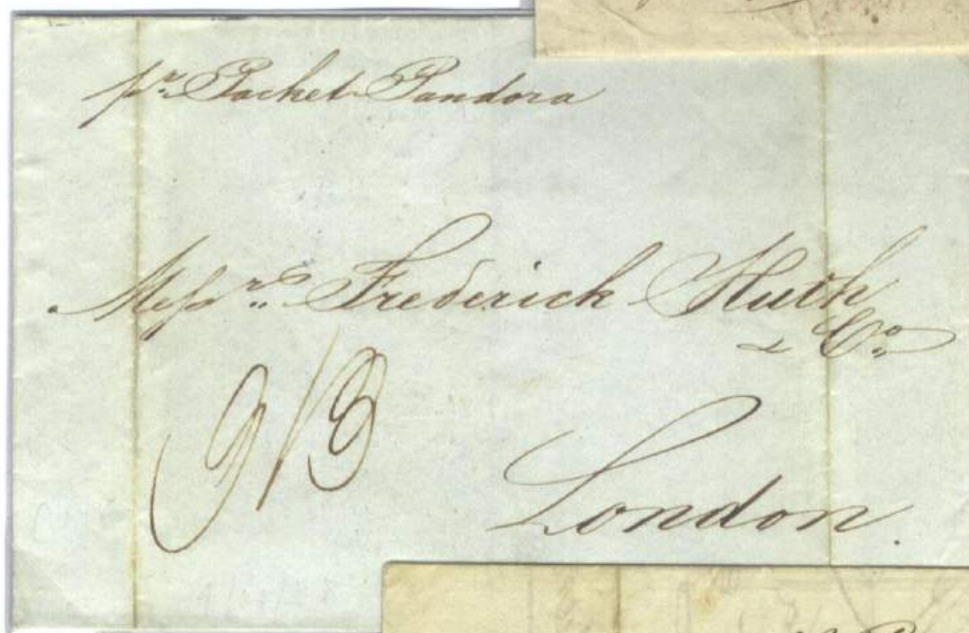 pr. Packet Pandora
Messrs. Frederick Huth
& Co.
9/3
London.